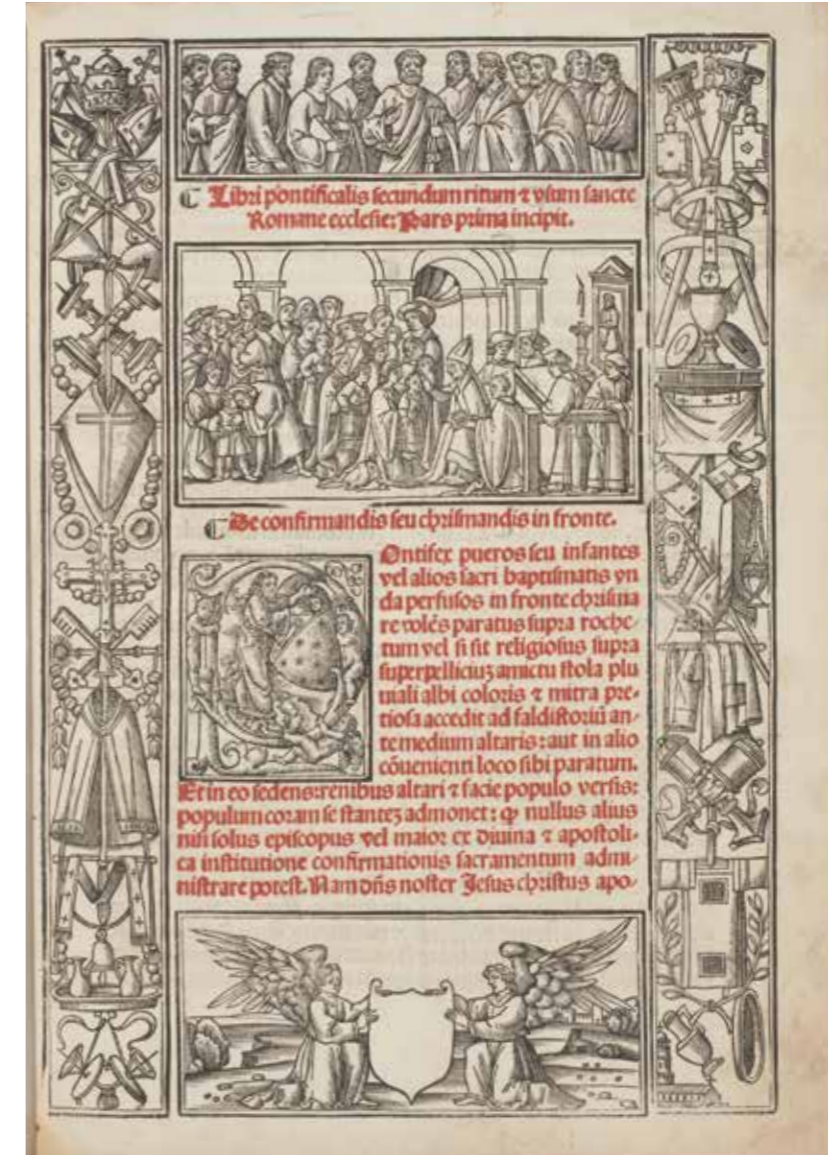 ☾ Libri pontificalis secundum ritum ⁊ vsum sancte
Romane ecclesie: Pars prima incipit.
☾ De confirmandis seu chrismandis in fronte.
Ontifex pueros seu infantes
vel alios sacri baptismatis vn
da perfusos in fronte chrisma
re volēs paratus supra roche-
tum vel si sit religiosus supra
superpelliciuꝫ amictu stola plu
uiali albi coloris ⁊ mitra pre-
tiosa accedit ad faldistoriū an-
te medium altaris: aut in alio
cōuenienti loco sibi paratum.
Et in eo sedens: renibus altari ⁊ facie populo versis:
populum coram se stanteꝫ admonet: ꝙ nullus alius
nisi solus episcopus vel maior ex diuina ⁊ apostoli-
ca institutione confirmationis sacramentum admi-
nistrare potest. Nam dn̄s noster Jesus christus apo-